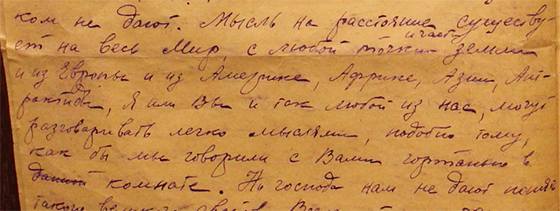 ком не дают. Мысль на расстояние существу
и части
ет на весь Мир, с любой точки земли
и из Европы и из Америке, Африке, Азии, Ант
рактиды, Я или Вы и так любой из нас, могут
разговаривать легко мыслями, подобно тому,
как бы мы говорили с Вами гортанью в
данной комнате. Но господа нам не дают
такого